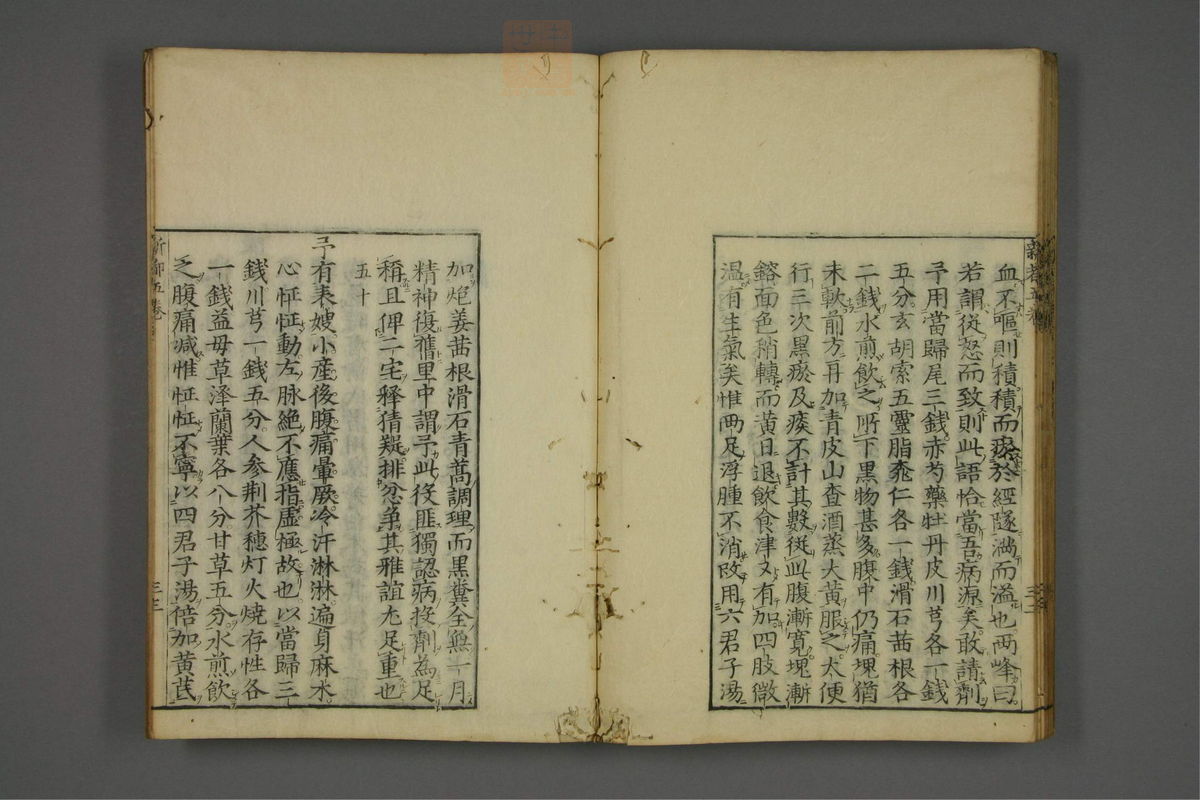 血不嘔則積積而瘀於經隧滿而溢也两峰曰
若謂従怒而致則此語恰當吾病源矣敢請劑
予用當歸尾三錢赤芍藥牡丹皮川芎各一錢
五分玄胡索五靈脂桃仁各一錢滑石茜根各
二錢水煎飲之所下黒物甚多腹中仍痛塊猶
未軟前方再加青皮山查酒蒸大黄服之大便
行三次黒瘀及痰不計其數従此腹漸寛塊漸
鎔面色稍轉而黄日退飲食津又有加四肢微
温有生氣矣惟两足浮腫不消改用六君子湯
加炮姜茜根滑石青蒿調理而黒糞全無一月
精神復舊里中謂予此役匪獨認病投劑為足
稱且俾二宅釋猜疑排忿争其雅誼尤足重也
五十
予有表嫂小產後腹痛暈厥冷汗淋淋遍身麻木
心怔怔動左脉絶不應指虚極故也以當歸三
錢川芎一錢五分人参荆芥穂灯火燒存性各
一錢益母草澤蘭葉各八分甘草五分水煎飲
乏腹痛减惟怔怔不寧以四君子湯倍加黄芪
新都五卷
三三